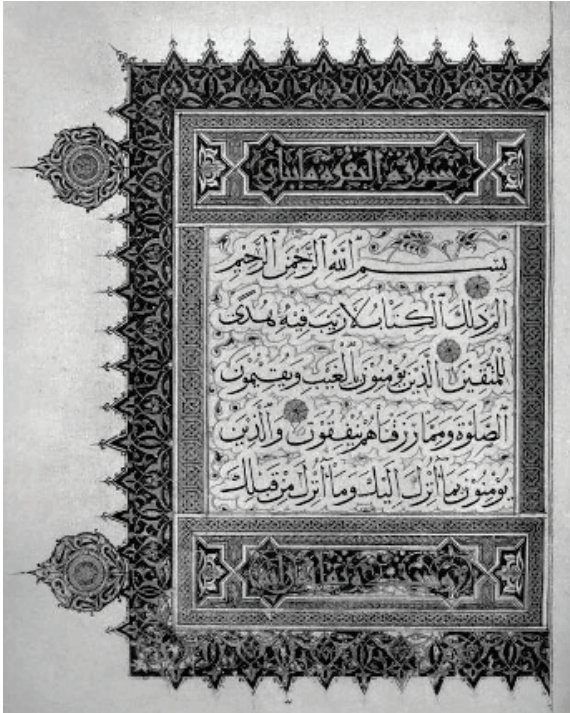 سورة البقرة مايتان
بِسْمِ اللَّهِ الرَّحْمَنِ الرَّحِيمِ
الم ذَلِكَ الْكِتَابُ لَا رَيْبَ فِيهِ هُدًى
لِلْمُتَّقِينَ الَّذِينَ يُؤْمِنُونَ بِالْغَيْبِ وَيُقِيمُونَ
الصَّلَوةَ وَمِمَّا رَزَقْنَاهُمْ يُنْفِقُونَ وَالَّذِينَ
يُؤْمِنُونَ بِمَا أُنْزِلَ إِلَيْكَ وَمَا أُنْزِلَ مِنْ قَبْلِكَ